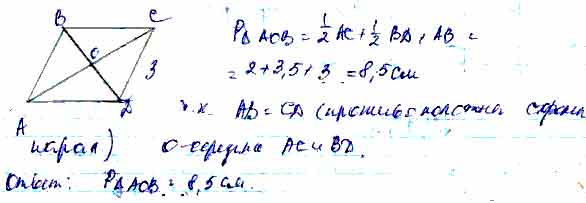 B C
P△AOB = 1/2 AC + 1/2 BD + AB =
O
= 2 + 3,5 + 3 = 8,5 см
3
A D
т.к. AB = CD (противоположные стороны
парал) O - середина AC и BD.
Ответ: P△AOB = 8,5 см.